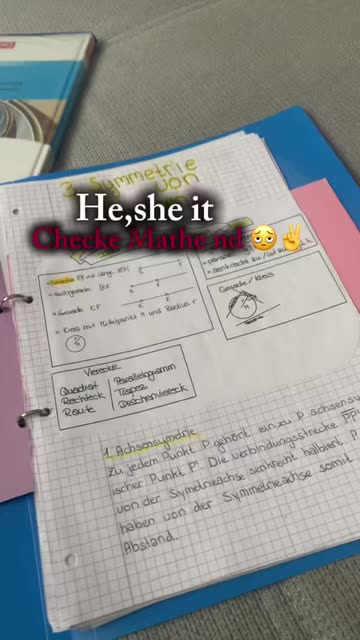 3. Symmetrie
von
He,she it
Checke Mathe nd 😳✌
EF
Gerade EF
Kreis mit Mittelpunkt M und Radius r
M
senkrecht
Gerade / Kreis
M
Vierecke
Quadrat
Rechteck
Raute
Parallelogramm
Trapez
Drachenviereck
1. Achsensymetrie
zu jedem Punkt P gehört ein zu P achsensy
ischer Punkt P'. Die verbindungsstrecke PP'
von der Symetrieachse senkrecht halbiert. P
haben von der Symmetrieachse somit
Abstand.